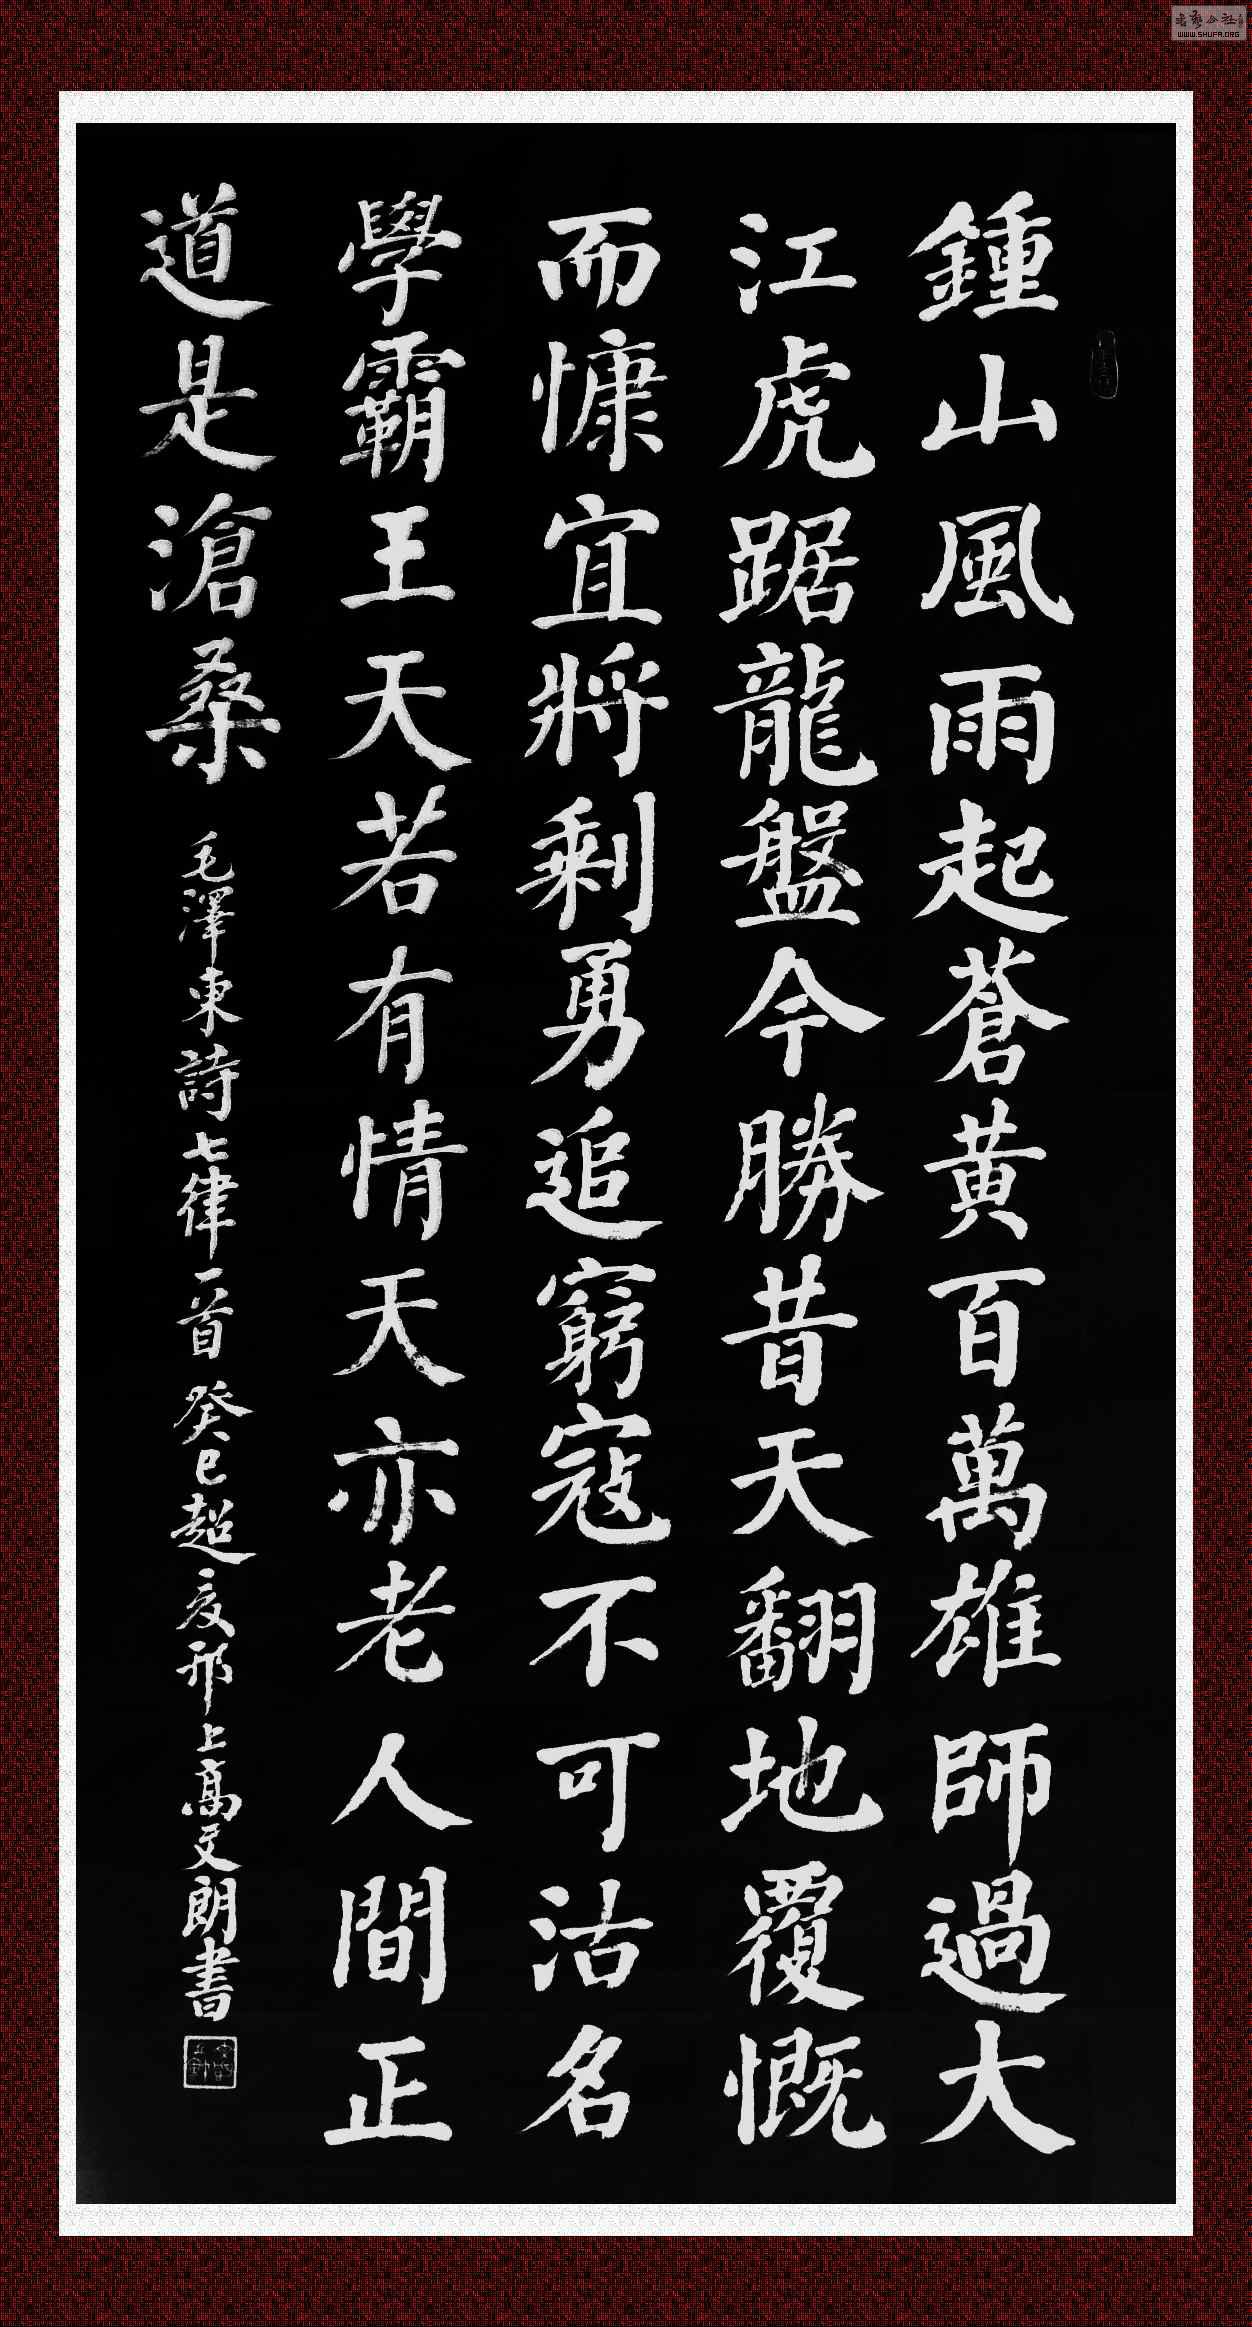 鍾山風雨起蒼黄百萬雄師過大
江虎踞龍盤今勝昔天翻地覆慨
而慷宜將剩勇追窮寇不可沽名
學霸王天若有情天亦老人間正
道是滄桑
毛澤東詩七律一首 癸巳超夏邢上高文朗書
WWW.SHUFA.ORG